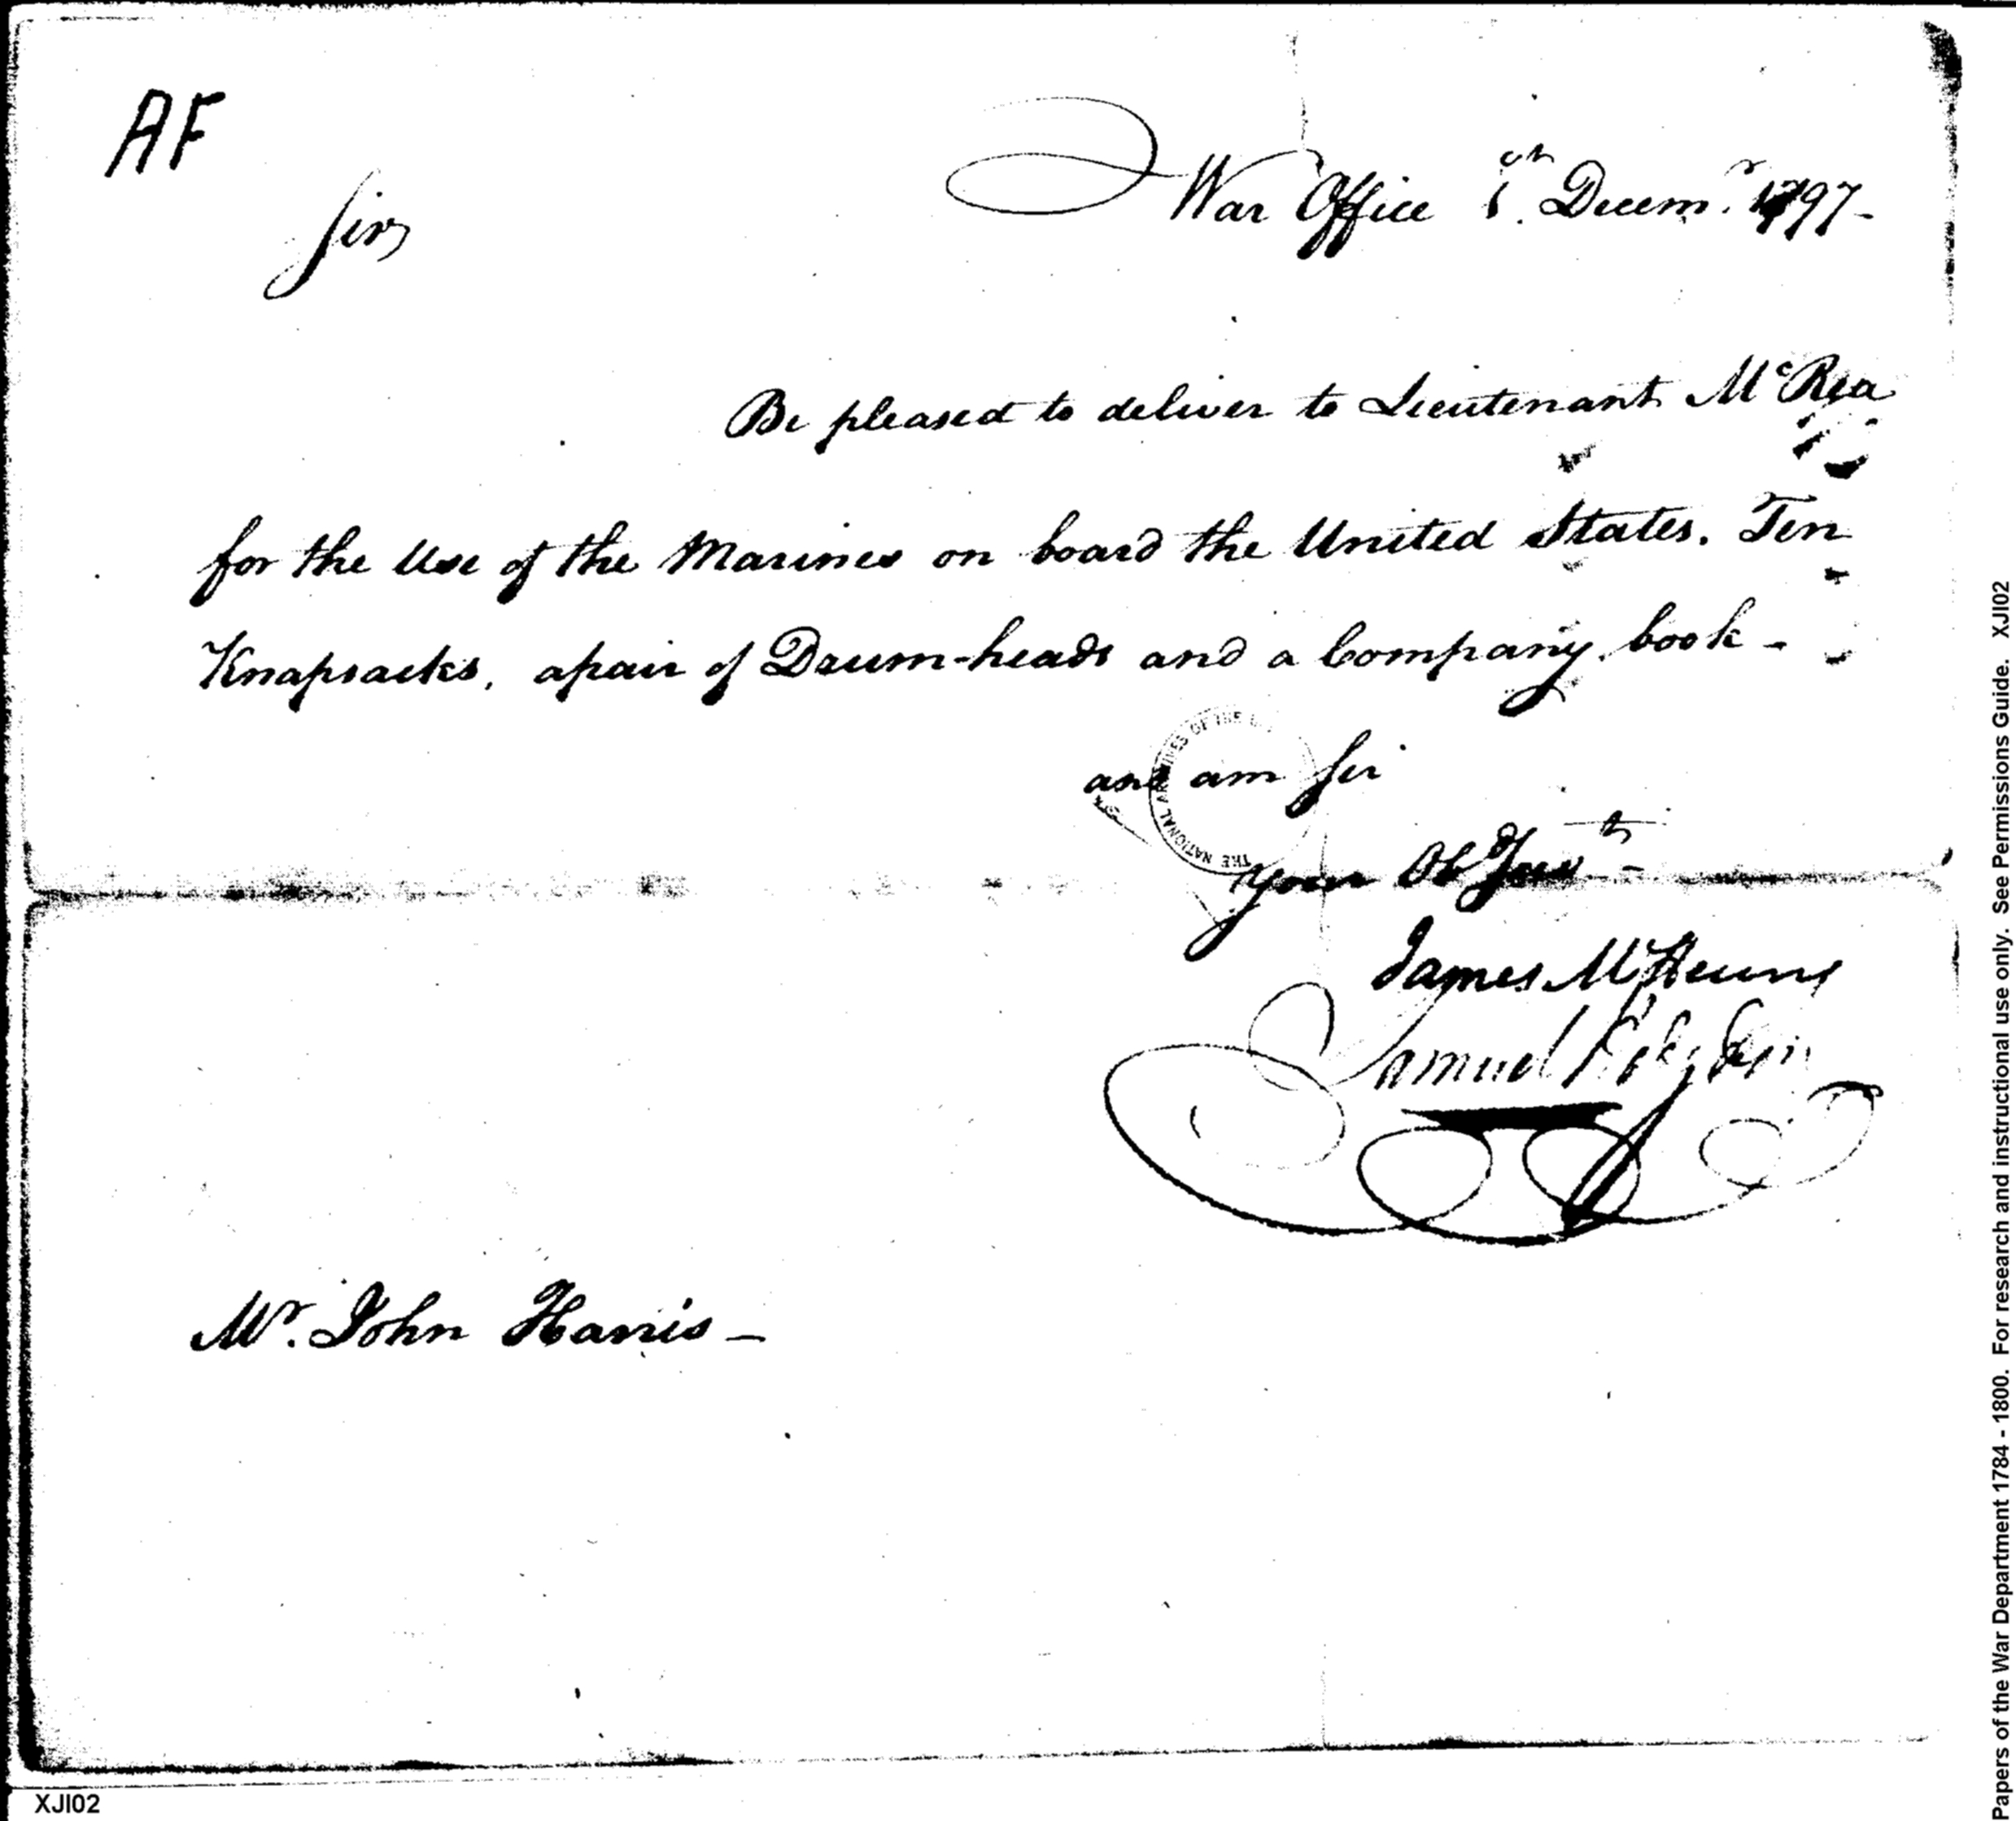 AF
War Office 5th. Decemr. 1797-
Sir
Be pleased to deliver to Lieutenant McRea
for the Use of the Marines on board the United States. Ten
Knapsacks, apair of Drum-heads and a Company book -
and am Sir
THE NATIONAL ARCHIVES OF THE U.
your Ob
James McHenry
Samuel Hodgdon
Mr. John Harris -
XJI02
Papers of the War Department 1784 - 1800. For research and instructional use only. See Permissions Guide. XJI02